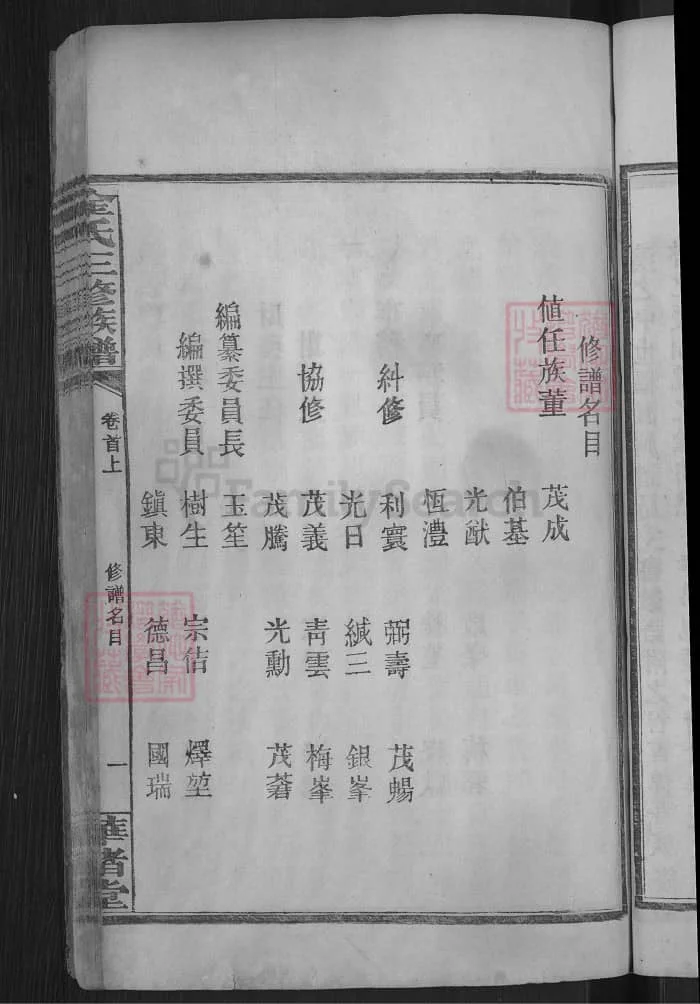 修譜名目
値任族董 茂成
伯基
光猷
恆澧
糾修 利寰 弼壽 茂暢
光日 緘三 銀峯
協修 茂義 靑雲 梅峯
茂騰 光勳 茂莙
編纂委員長 玉笙
編選委員 樹生 宗佶 燡堃
鎭東 德昌 國瑞
氏三修族譜
卷首上
修譜名目
一
堂
FamilySearch